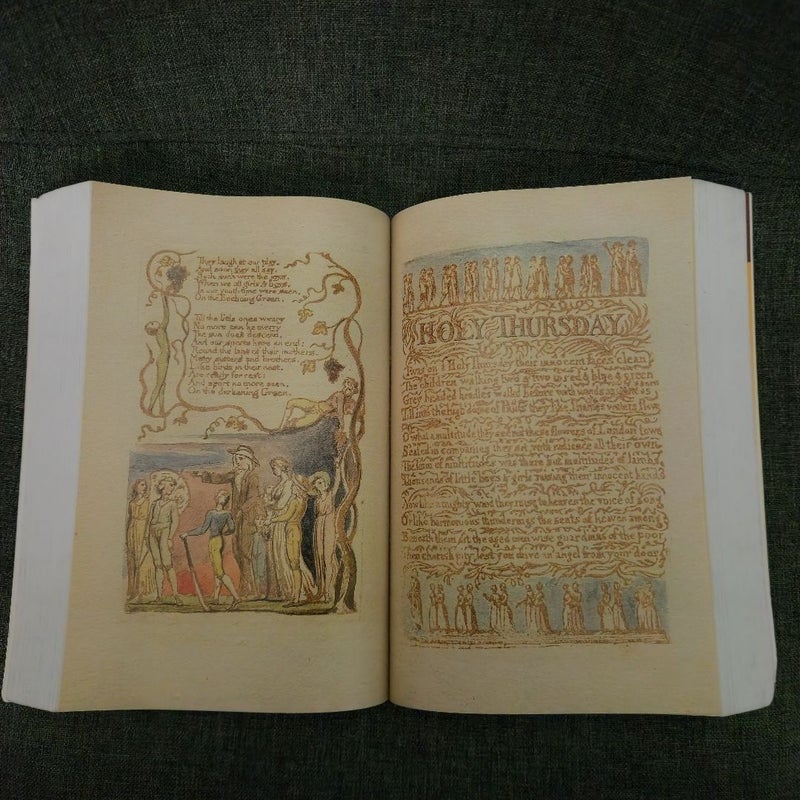 They laugh at our play,
And soon they all say,
Such such were the joys,
When we all girls & boys,
In our youth-time were seen,
On the Ecchoing Green.
Till the little ones weary
No more can be merry
The sun does descend,
And our sports have an end:
Round the laps of their mothers,
Many sisters and brothers,
Like birds in their nest,
Are ready for rest:
And sport no more seen,
On the darkening Green.
HOLY THURSDAY
Twas on a Holy Thursday their innocent faces clean
The children walking two & two in red & blue & green
Grey headed beadles walkd before with wands as white as snow
Till into the high dome of Pauls they like Thames waters flow
O what a multitude they seemd these flowers of London town
Seated in companies they sit with radiance all their own
The hum of multitudes was there but multitudes of lambs
Thousands of little boys & girls raising their innocent hands
Now like a mighty wind they raise to heaven the voice of song
Or like harmonious thunderings the seats of heaven among
Beneath them sit the aged men wise guardians of the poor
Then cherish pity, lest you drive an angel from your door